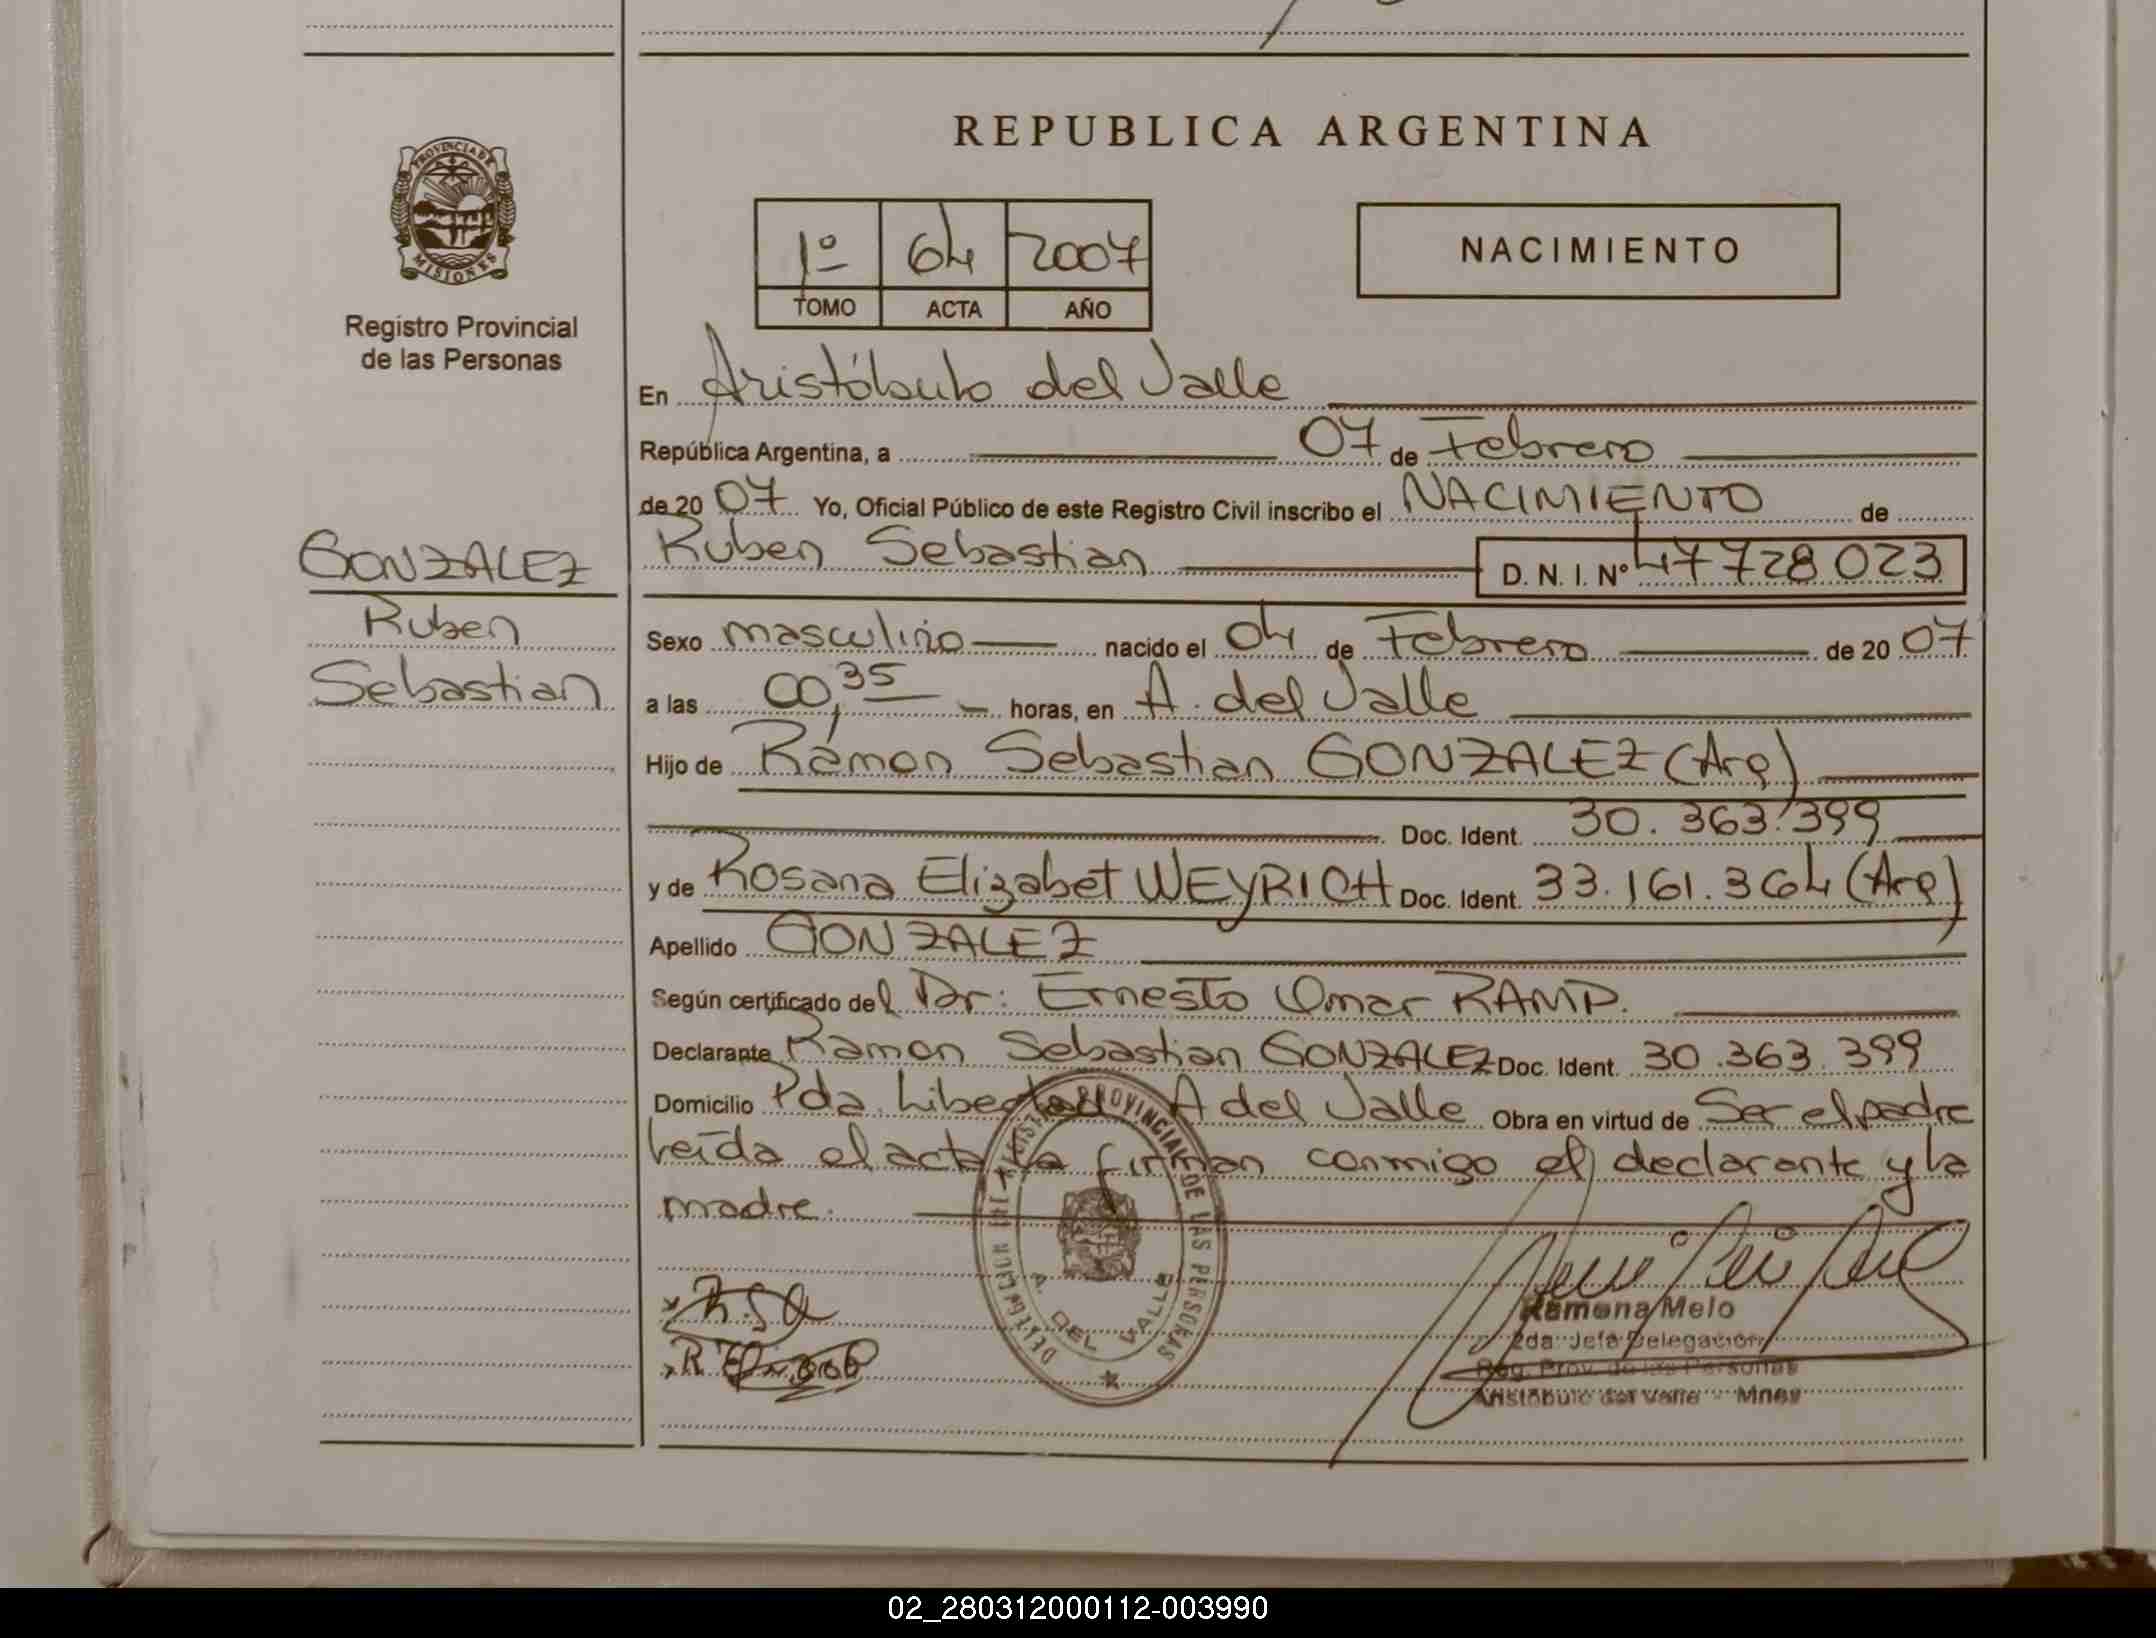 REPUBLICA ARGENTINA
PROVINCIA DE
MISIONES
Registro Provincial
de las Personas
1º 64 2007
TOMO ACTA AÑO
NACIMIENTO
En Aristóbulo del Valle
República Argentina, a 07 de Febrero
de 20 07 Yo, Oficial Público de este Registro Civil inscribo el NACIMIENTO de
GONZALEZ
Ruben
Sebastian
Ruben Sebastian D. N. I. Nº 47 728 023
Sexo masculino nacido el 04 de Febrero de 20 07
a las 00,35 horas, en A. del Valle
Hijo de Ramon Sebastian GONZALEZ (Arg)
Doc. Ident. 30.363.399
y de Rosana Elizabet WEYRICH Doc. Ident. 33.161.364 (Arg)
Apellido GONZALEZ
Según certificado del Dr: Ernesto Omar RAMP.
Declarante Ramon Sebastian GONZALEZ Doc. Ident. 30.363.399
Domicilio Pda. Libertad A del Valle Obra en virtud de Ser el padre
Leída el acta la firman conmigo el declarante y la
madre.
REGISTRO PROVINCIAL DE LAS PERSONAS
DELEGACION
A. DEL VALLE
R.S.G
Ramona Melo
2da Jefa Delegación
Reg. Prov. de las Personas
Aristóbulo del Valle - Mnes
02_280312000112-003990